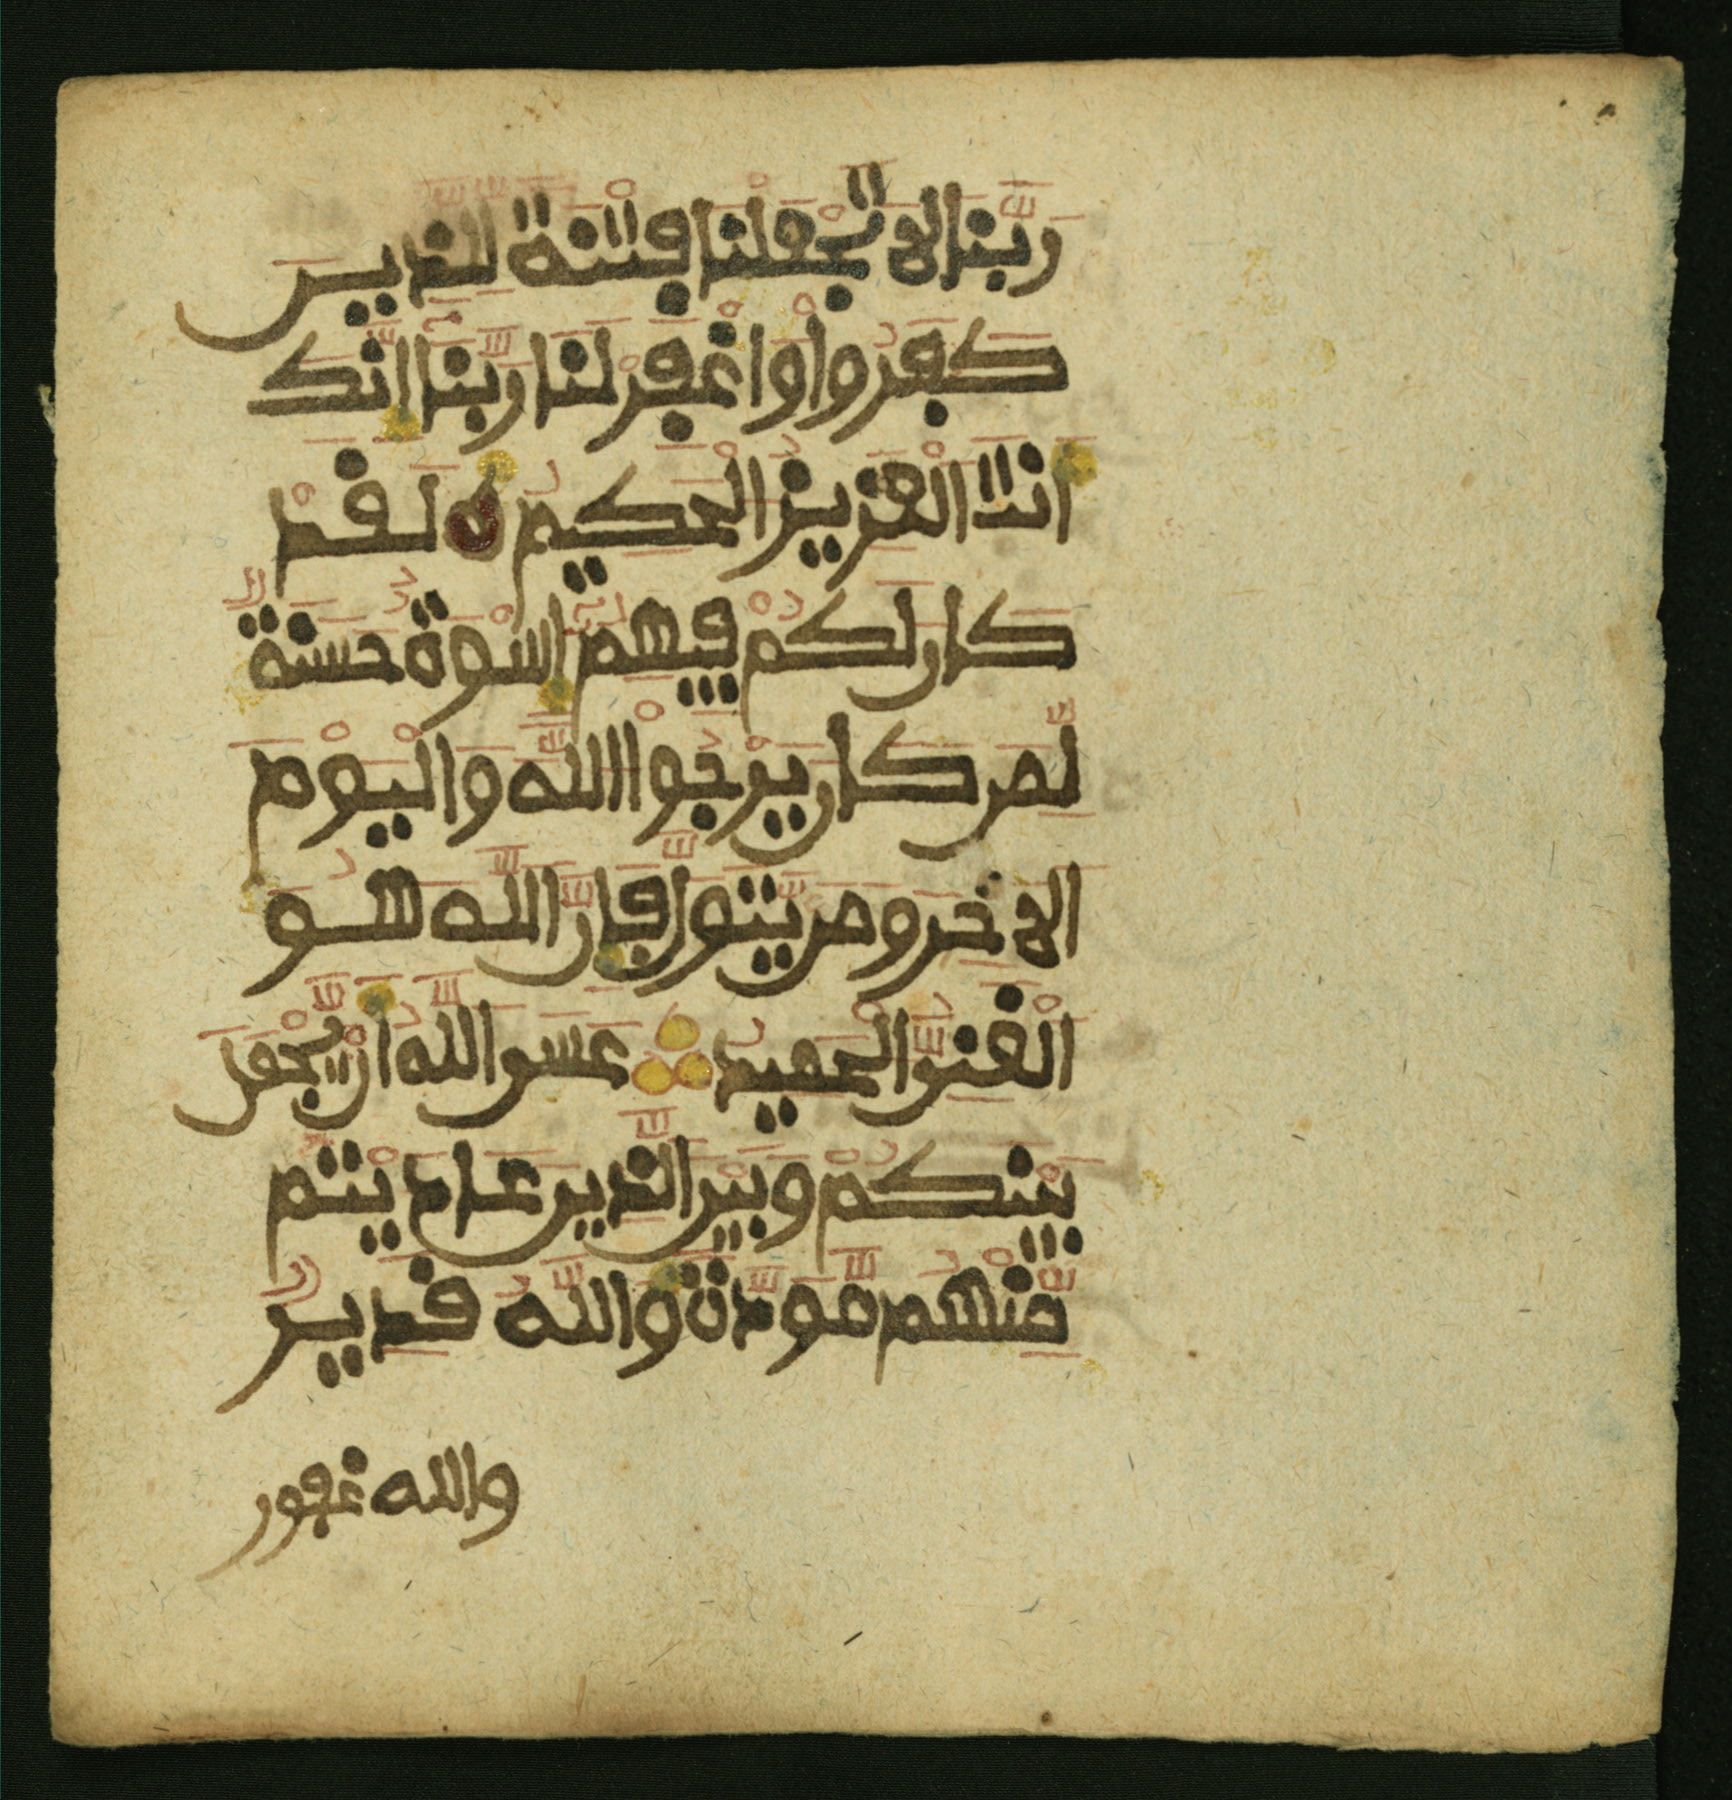 رَبَّنَا لَا تَجْعَلْنَا فِتْنَةً لِّلَّذِينَ
كَفَرُواْ وَاغْفِرْ لَنَا رَبَّنَا إِنَّكَ
أَنتَ الْعَزِيزُ الْحَكِيمُ لَقَدْ
كَانَ لَكُمْ فِيهِمْ إِسْوَةٌ حَسَنَةٌ
لِّمَن كَانَ يَرْجُواْ اللَّهَ وَالْيَوْمَ
الَاخِرَ وَمَن يَّتَوَلَّ فَإِنَّ اللَّهَ هُوَ
الْغَنِيُّ الْحَمِيدُ عَسَى اللَّهُ أَنْ يَّجْعَلَ
بَيْنَكُمْ وَبَيْنَ الَّذِينَ عَادَيْتُم
مِّنْهُم مَّوَدَّةً وَاللَّهُ قَدِيرٌ
والله غفور